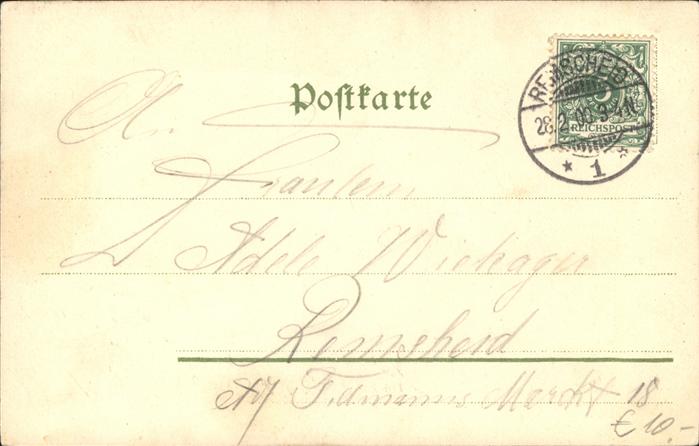 Postkarte
REMSCHEID
5
REICHSPOST
* 1 *
An
Fräulein
Adele Wiehager
Remscheid
Markt 18
€ 10,-